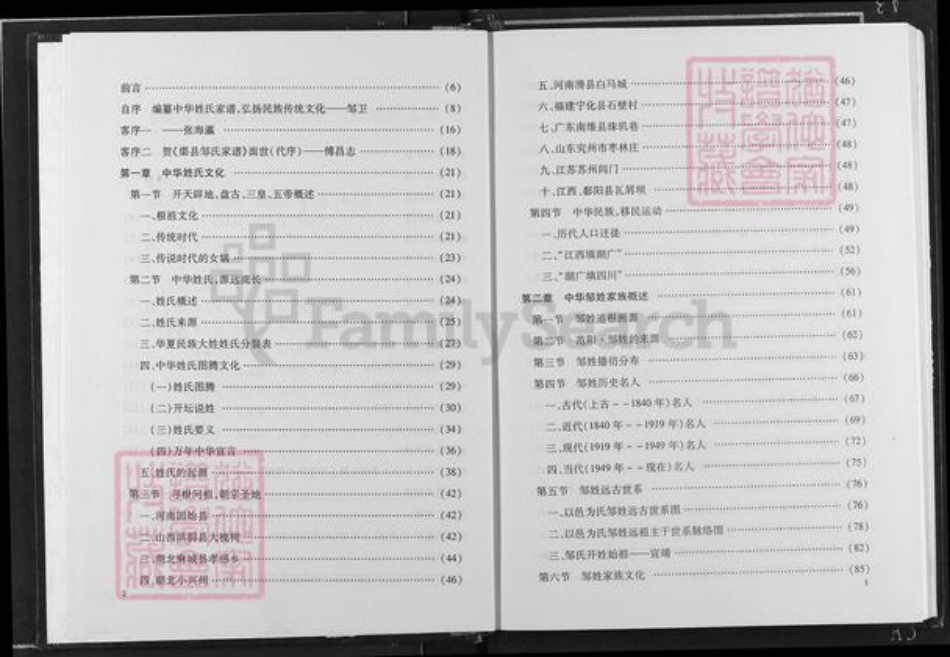 前言 (6)
自序 编纂中华姓氏家谱,弘扬民族传统文化——邹卫 (8)
客序一 ——张海瀛 (16)
客序二 贺《渠县邹氏家谱》面世(代序)——傅昌志 (18)
第一章 中华姓氏文化 (21)
第一节 开天辟地,盘古、三皇、五帝概述 (21)
一、根祖文化 (21)
二、传统时代 (21)
三、传说时代的女娲 (23)
第二节 中华姓氏,源远流长 (24)
一、姓氏概述 (24)
二、姓氏来源 (25)
三、华夏民族大姓姓氏分裂表 (27)
四、中华姓氏图腾文化 (29)
(一)姓氏图腾 (29)
(二)开坛说姓 (30)
(三)姓氏要义 (34)
(四)万年中华宣言 (36)
五、姓氏的起源 (38)
第三节 寻根问祖,朝宗圣地 (42)
一、河南固始县 (42)
二、山西洪洞县大槐树 (42)
三、湖北麻城县孝感乡 (44)
四、湖北小兴州 (46)
2
五、河南滑县白马城 (46)
六、福建宁化县石壁村 (47)
七、广东南雄县珠玑巷 (47)
八、山东兖州市枣林庄 (48)
九、江苏苏州阊门 (48)
十、江西、鄱阳县瓦屑坝 (48)
第四节 中华民族,移民运动 (49)
一、历代人口迁徙 (49)
二、"江西填湖广" (52)
三、"湖广填四川" (56)
第二章 中华邹姓家族概述 (61)
第一节 邹姓追根溯源 (61)
第二节 范阳·邹姓的来源 (62)
第三节 邹姓播衍分布 (63)
第四节 邹姓历史名人 (66)
一、古代(上古--1840年)名人 (67)
二、近代(1840年--1919年)名人 (69)
三、现代(1919年--1949年)名人 (72)
四、当代(1949年--现在)名人 (75)
第五节 邹姓远古世系 (76)
一、以邑为氏邹姓远古世系图 (76)
二、以邑为氏邹姓远祖主干世系脉络图 (78)
三、邹氏开姓始祖——宣靖 (82)
第六节 邹姓家族文化 (85)
1
FamilySearch